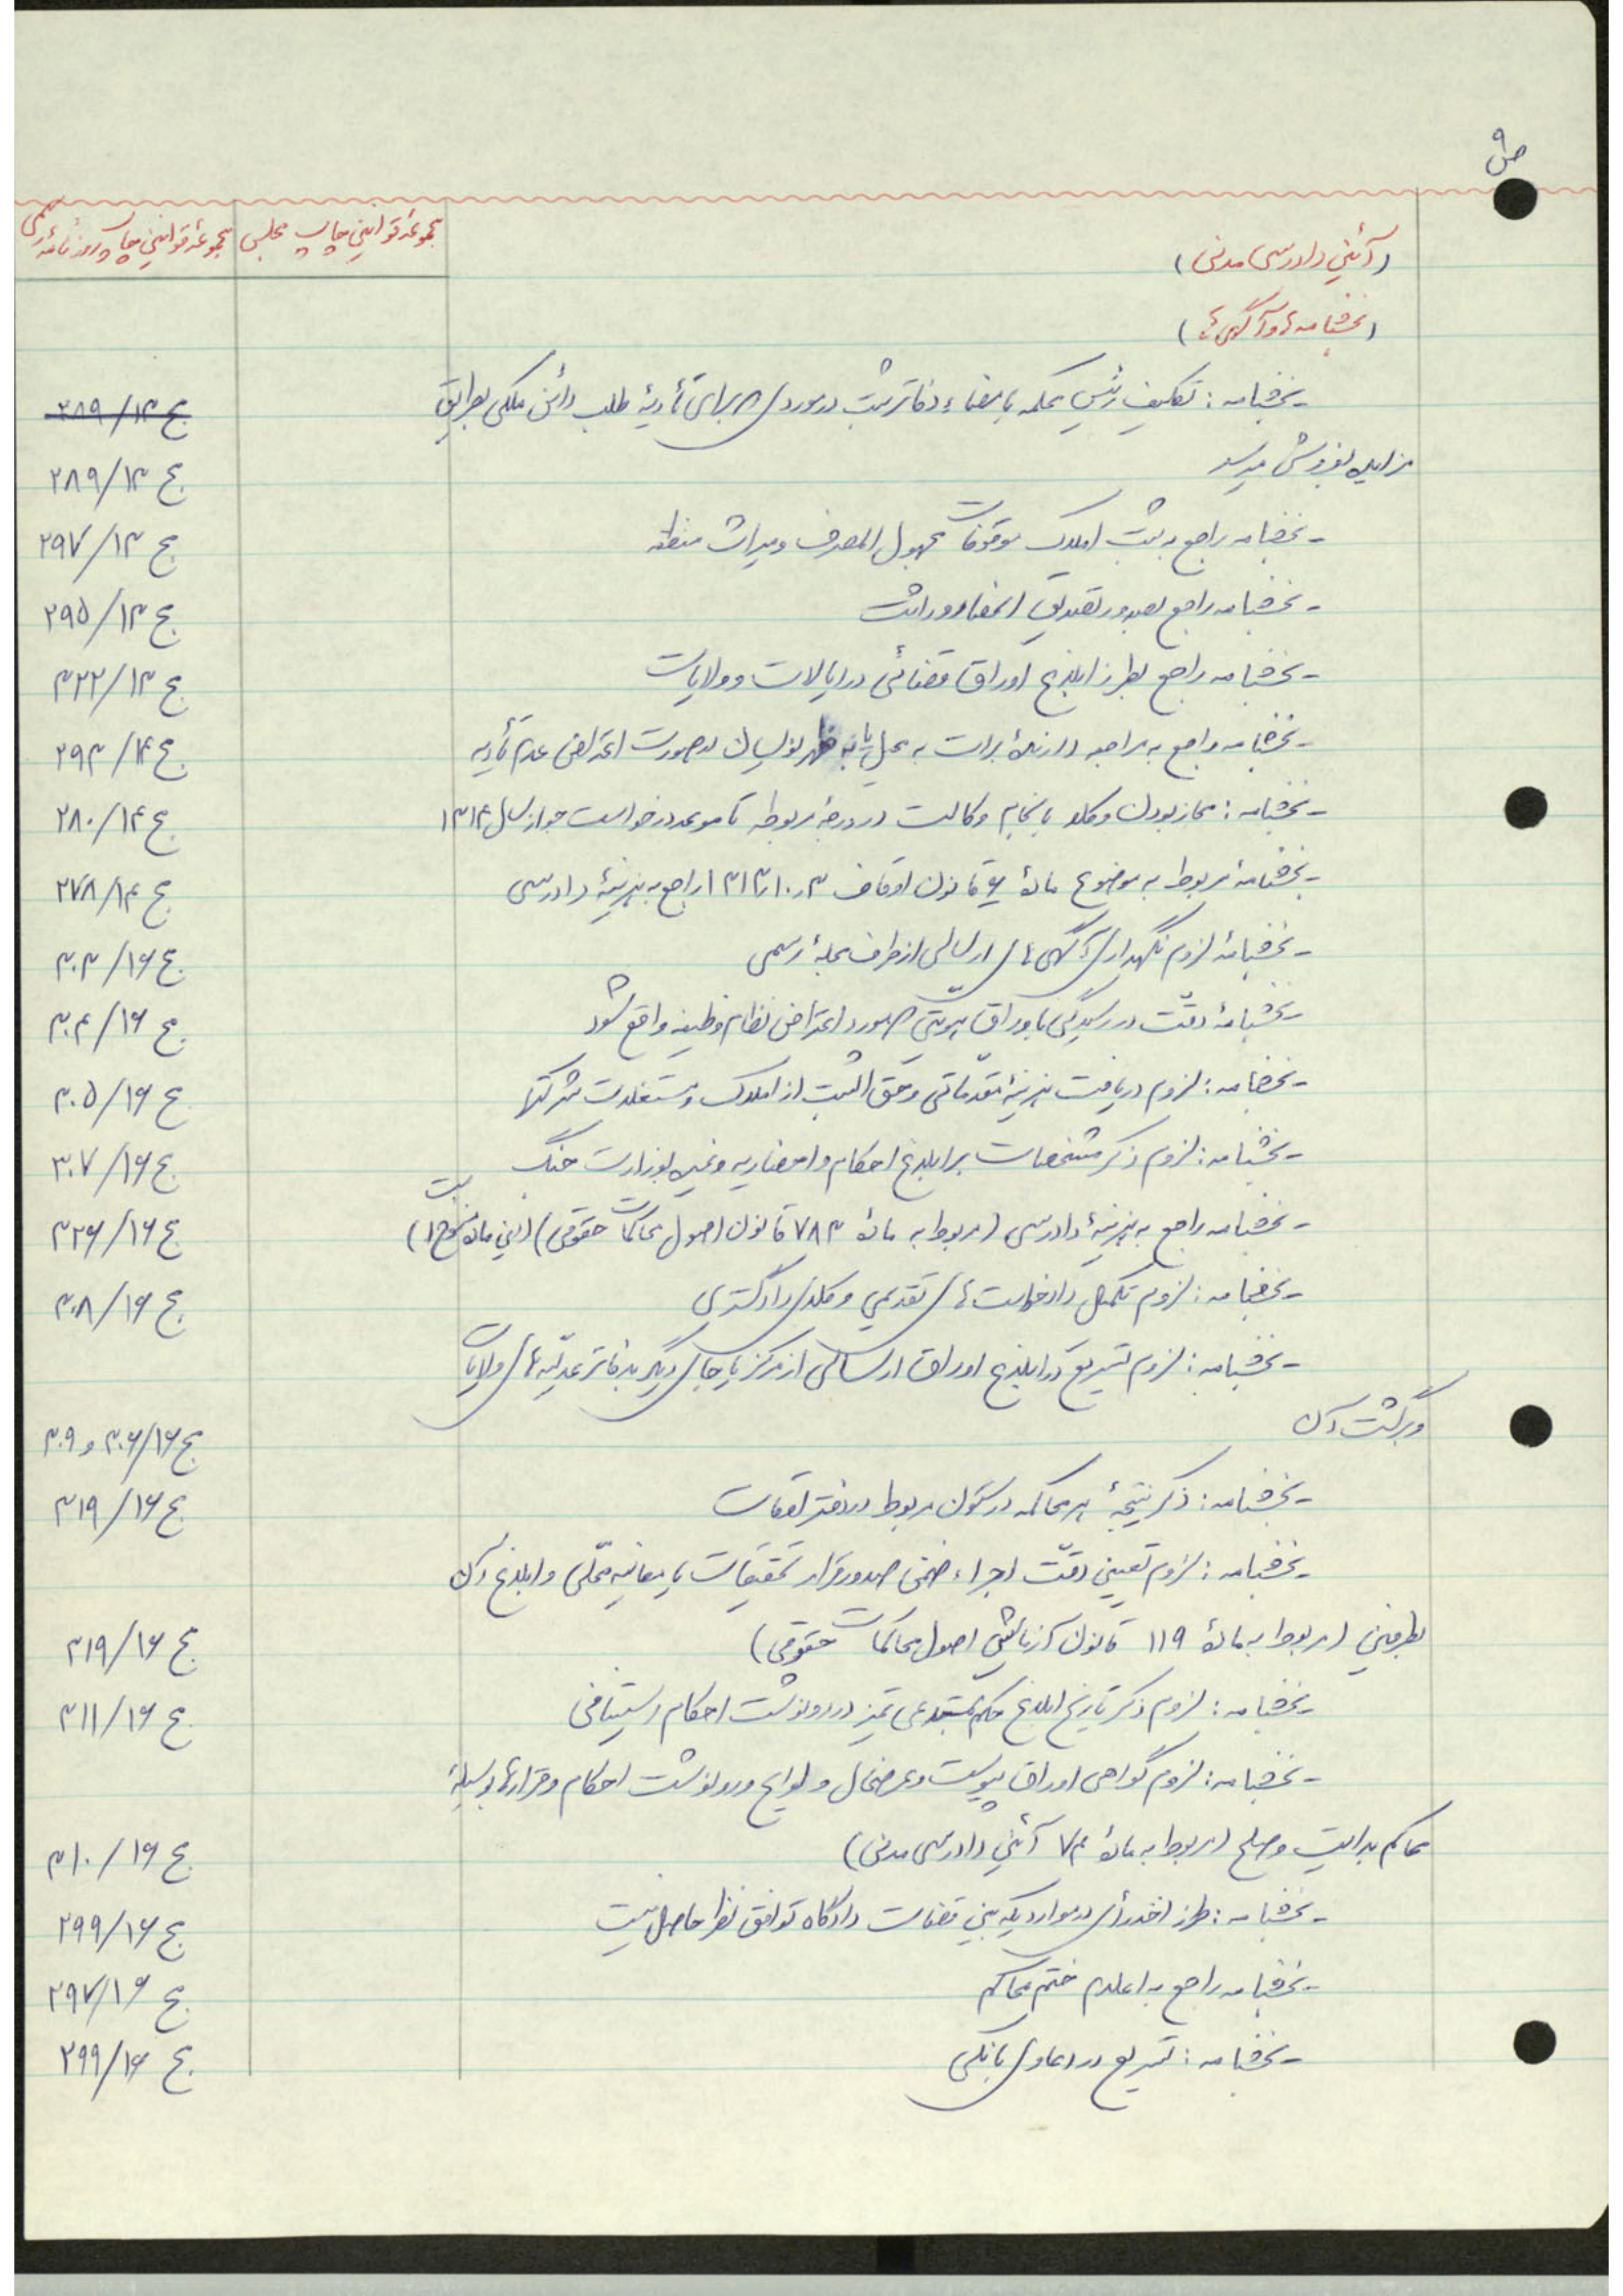 ص ۹
مجموعه قوانین چاپ روزنامه رسمی
مجموعه قوانین چاپ مجلس
(آئین دادرسی مدنی)
(بخشنامه‌ها و آگهی‌ها)
- بخشنامه: تکلیف رئیس محکمه بامضاء دفاتر ثبت در موردی که برای تأدیهٔ طلب دائن ملکی بطریق ج ۱۳/۲۸۹
مزایده بفروش میرسد ج ۱۳/۲۸۹
- بخشنامه راجع به ثبت املاک موقوفات مجهول المصرف و میراث ج ۱۳/۲۹۷
- بخشنامه راجع بصدور تصدیق انحصار وراثت ج ۱۳/۲۹۵
- بخشنامه راجع بطرز ابلاغ اوراق قضائی در ایالات و ولایات ج ۱۳/۳۲۲
- بخشنامه راجع به مراجعه دارندهٔ برات به محل یا به ظهرنویسان در صورت اعتراض عدم تأدیه ج ۱۴/۲۹۳
- بخشنامه: مجاز بودن وکلا بانجام وکالت در درجهٔ مربوطه تا موعد درخواست جواز سال ۱۳۱۴ ج ۱۴/۲۸۰
- بخشنامهٔ مربوط به موضوع مادهٔ ۶ قانون اوقاف ۳ر۱۰ر۱۳۱۳ راجع به هزینهٔ دادرسی ج ۱۴/۲۷۸
- بخشنامهٔ لزوم نگهداری آگهی‌های ارسالی از طرف مجلهٔ رسمی ج ۱۶/۳۰۳
- بخشنامهٔ دقّت در رسیدگی باوراق هویتی که مورد اعتراض نظام وظیفه واقع شود ج ۱۶/۳۰۴
- بخشنامه: لزوم دریافت هزینهٔ مقدماتی و حق الثبت از املاک و مستغلات شرکتها ج ۱۶/۳۰۵
- بخشنامه: لزوم ذکر مشخصات برابلاغ احکام و احضاریه و غیره بوزارت جنگ ج ۱۶/۳۰۷
- بخشنامه راجع به هزینهٔ دادرسی (مربوط به مادهٔ ۷۸۳ قانون اصول محاکمات حقوقی) (این ماده منسوخ است) ج ۱۶/۳۲۶
- بخشنامه: لزوم تکمیل دادخواست‌های تقدیمی وکلای دادگستری ج ۱۶/۳۰۸
- بخشنامه: لزوم تسریع در ابلاغ اوراق ارسالی از مرکز یا جای دیگر بدفاتر عدلیّه‌های ولایات
و برگشت آن ج ۱۶/۳۰۶ و ۳۰۹
- بخشنامه: ذکر نتیجهٔ هر محاکمه در ستون مربوط در دفتر اوقات ج ۱۶/۳۱۹
- بخشنامه: لزوم تعیین وقت اجراء ضمن صدور قرار تحقیقات یا معاینه محلّی و ابلاغ آن
بطرفین (مربوط به مادهٔ ۱۱۹ قانون آزمایشی اصول محاکمات حقوقی) ج ۱۶/۳۱۹
- بخشنامه: لزوم ذکر تاریخ ابلاغ حکم بمستدعی تمیز در رونوشت احکام استینافی ج ۱۶/۳۱۱
- بخشنامه: لزوم گواهی اوراق پیوست و عرضحال و لوایح و رونوشت احکام و قرارها بوسیلهٔ
محاکم بدایت و صلح (مربوط به مادهٔ ۷۴ آئین دادرسی مدنی) ج ۱۶/۳۱۰
- بخشنامه: طرز اخذ رأی در مواردیکه بین قضات دادگاه توافق نظر حاصل نیست ج ۱۶/۲۹۹
- بخشنامه راجع به اعلام ختم محاکم ج ۱۶/۲۹۷
- بخشنامه: تسریع در دعاوی بانکی ج ۱۶/۲۹۹